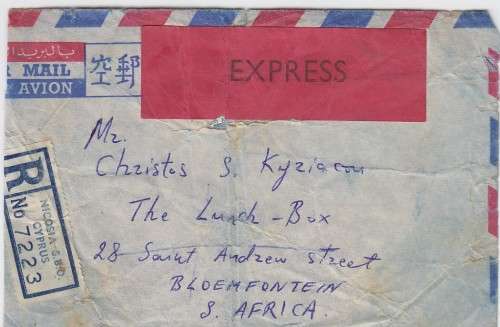 R MAIL
空郵
AVION
EXPRESS
Mr.
Christos S. Kyriacou
The Lunch-Box
28 Saint Andrew street
BLOEMFONTEIN
S. AFRICA.
R
NICOSIA
CYPRUS
No 7223